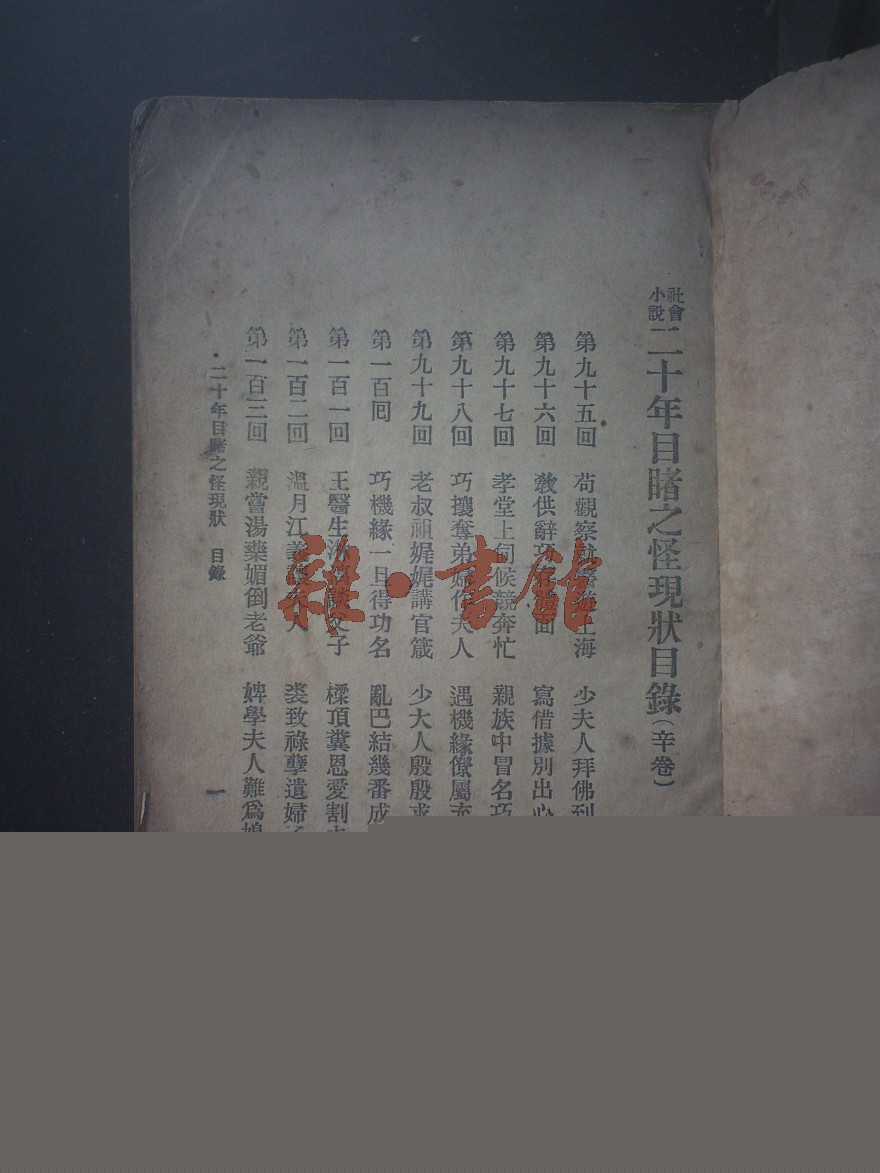 社會小說二十年目睹之怪現狀目錄(辛卷)
第九十五回 苟觀察就醫遊上海 少夫人拜佛到
第九十六回 教供辭巧 面 寫借據別出心
第九十七回 孝堂上伺候競奔忙 親族中冒名巧
第九十八回 巧攘奪弟婦作夫人 遇機緣僚屬充
第九十九回 老叔祖娓娓講官箴 少大人殷殷求
第一百回 巧機緣一旦得功名 亂巴結幾番成
第一百一回 王醫生 父子 樑頂糞恩愛割夫
第一百二回 溫月江義 夫人 裘致祿孽遺婦
第一百三回 親嘗湯藥媚倒老爺 婢學夫人難爲
二十年目睹之怪現狀 目錄 一
雜·書館